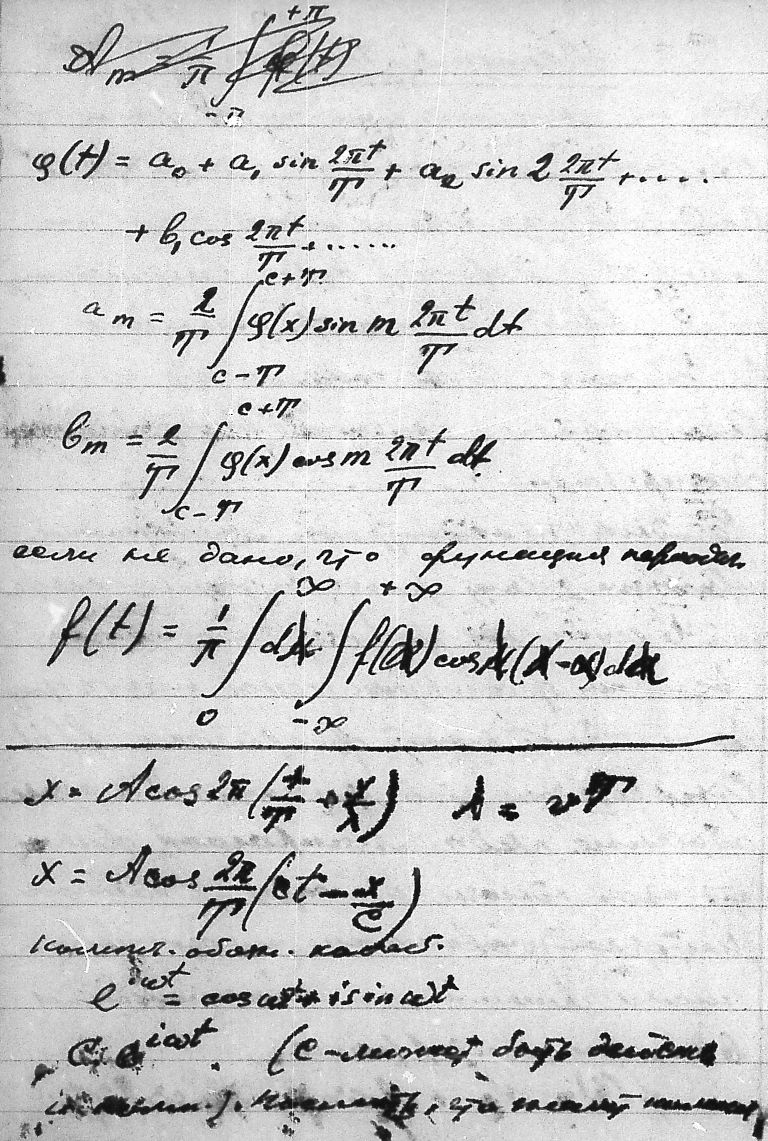 φ(t) = a₀ + a₁ sin 2πt/T + a₂ sin 2 2πt/T + ....
+ b₁ cos 2πt/T + ......
a_m = 2/T ∫_{c-T}^{c+T} φ(x) sin m 2πt/T dt
b_m = 2/T ∫_{c-T}^{c+T} φ(x) cos m 2πt/T dt
если не дано, что функция период.
f(t) = 1/π ∫_0^∞ ∫_{-∞}^{+∞}
x = A cos 2π (t/T - x/λ) λ = vT
x = A cos 2π/T (ct - x/c)
e^{iωt} = cos ωt + i sin ωt
C e^{iωt} (C - может быть действ